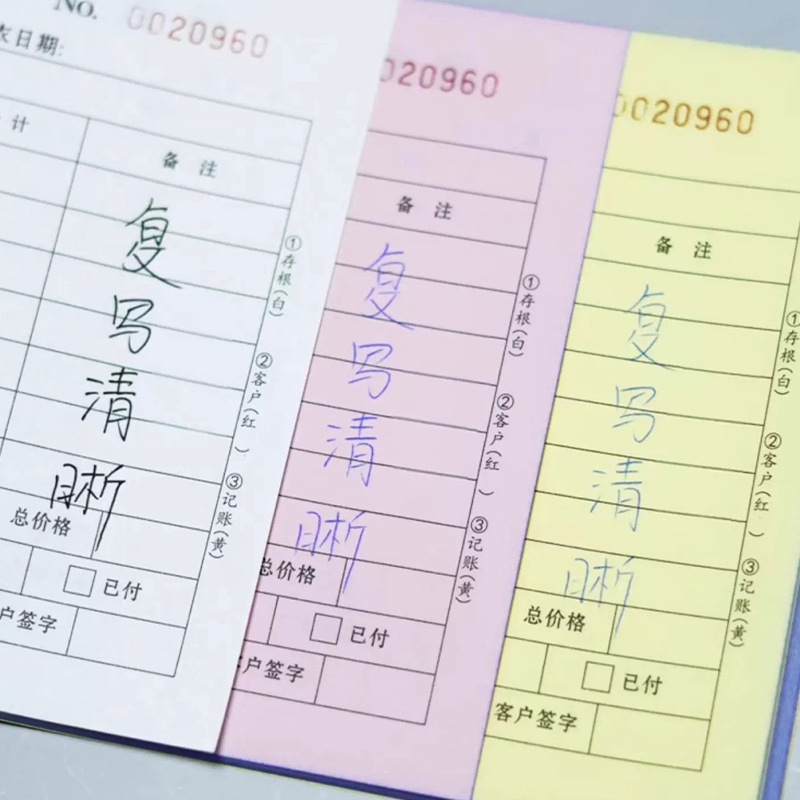 No. 0020960
衣日期:
计 备 注
复
写
清
晰
①存根(白)
②客户(红)
③记账(黄)
总价格
已付
户签字
0020960
备 注
复
写
清
晰
①存根(白)
②客户(红)
③记账(黄)
总价格
已付
客户签字
0020960
备 注
复
写
清
晰
①存根(白)
②客户(红)
③记账(黄)
总价格
已付
客户签字